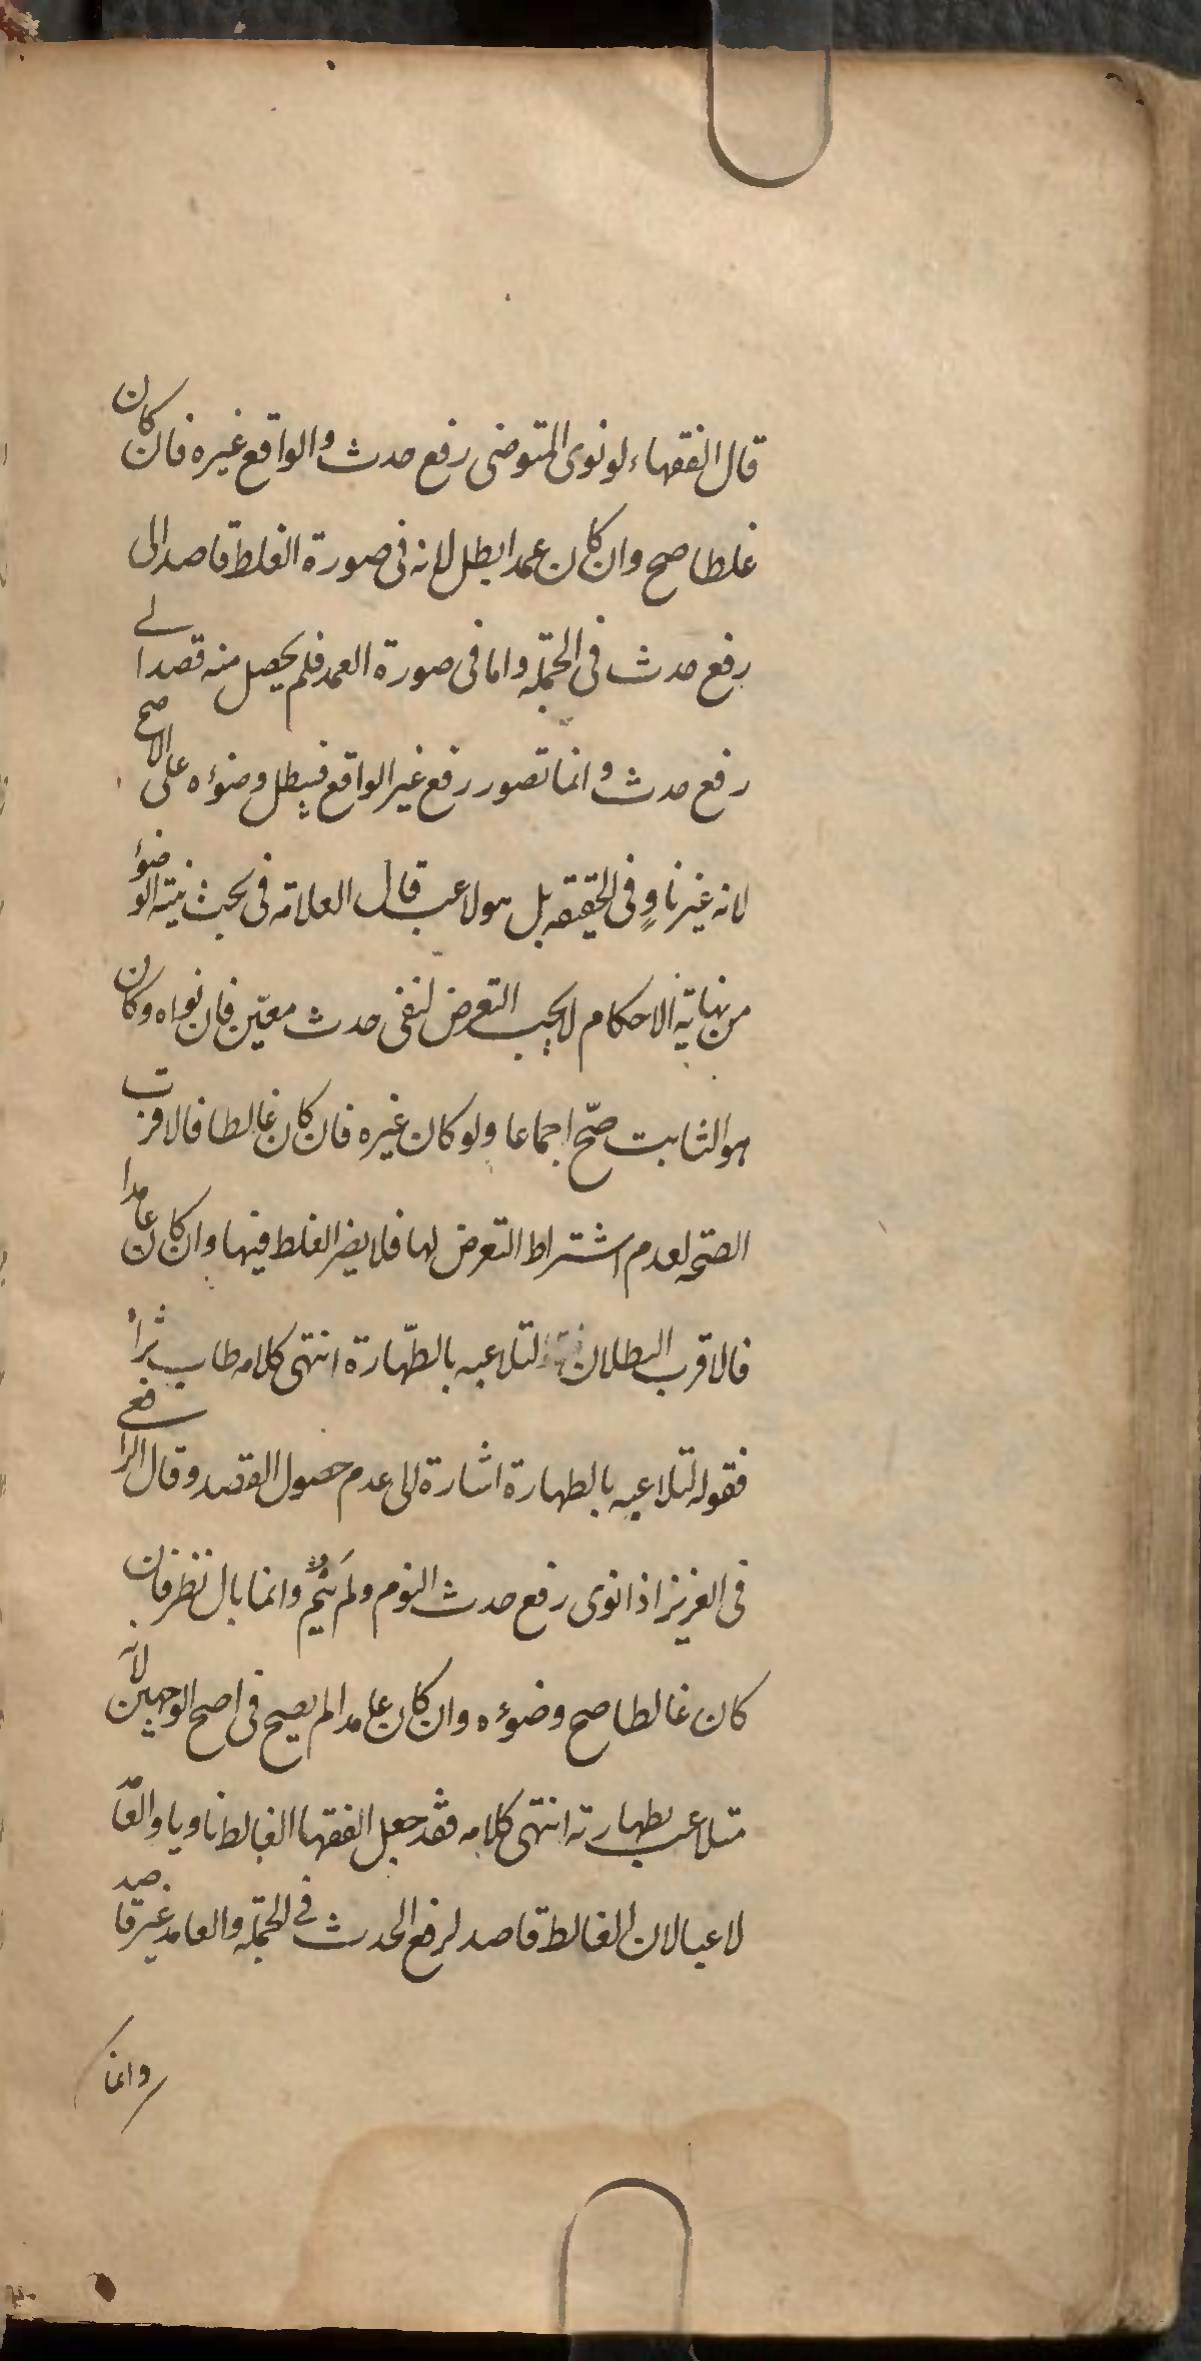 قال الفقهاء لو نوى المتوضى رفع حدث والواقع غيره فان كان
غلطا صح وان كان عمدا بطل لانه فى صورة الغلط قاصد الى
رفع حدث فى الجملة واما فى صورة العمد فلم يحصل منه قصد الے
رفع حدث وانما تصور رفع غير الواقع فيبطل وضوءه على الاصح
لانه غير ناوٍ فى الحقيقه بل هو لاعب قال العلامة فى بحث نيته الوضوٴ
من نهاية الاحكام لا يجب التعرض لنفى حدث معيّن فان نواه وكان
هو الثابت صحّ اجماعا ولو كان غيره فان كان غالطا فالاقرب
الصحه لعدم اشتراط التعرض لها فلا يضر الغلط فيها وان كان عامدا
فالاقرب البطلان لتلاعبه بالطّهارة انتهى كلامه طاب ثراه
فقوله لتلاعبه بالطهارة اشارة الى عدم حصول القصد وقال الرافعے
فى العزيز اذا نوى رفع حدث النوم ولم يَنَمْ وانما بال نظر فان
كان غالطا صح وضوءه وان كان عامدا لم يصح فى اصح الوجهين لانه
متلاعب بطهارته انتهى كلامه فقد جعل الفقها الغالط ناويا والعامد
لاعبا لان الغالط قاصد لرفع الحدث فے الجملة والعامد غير قاصد
وانما